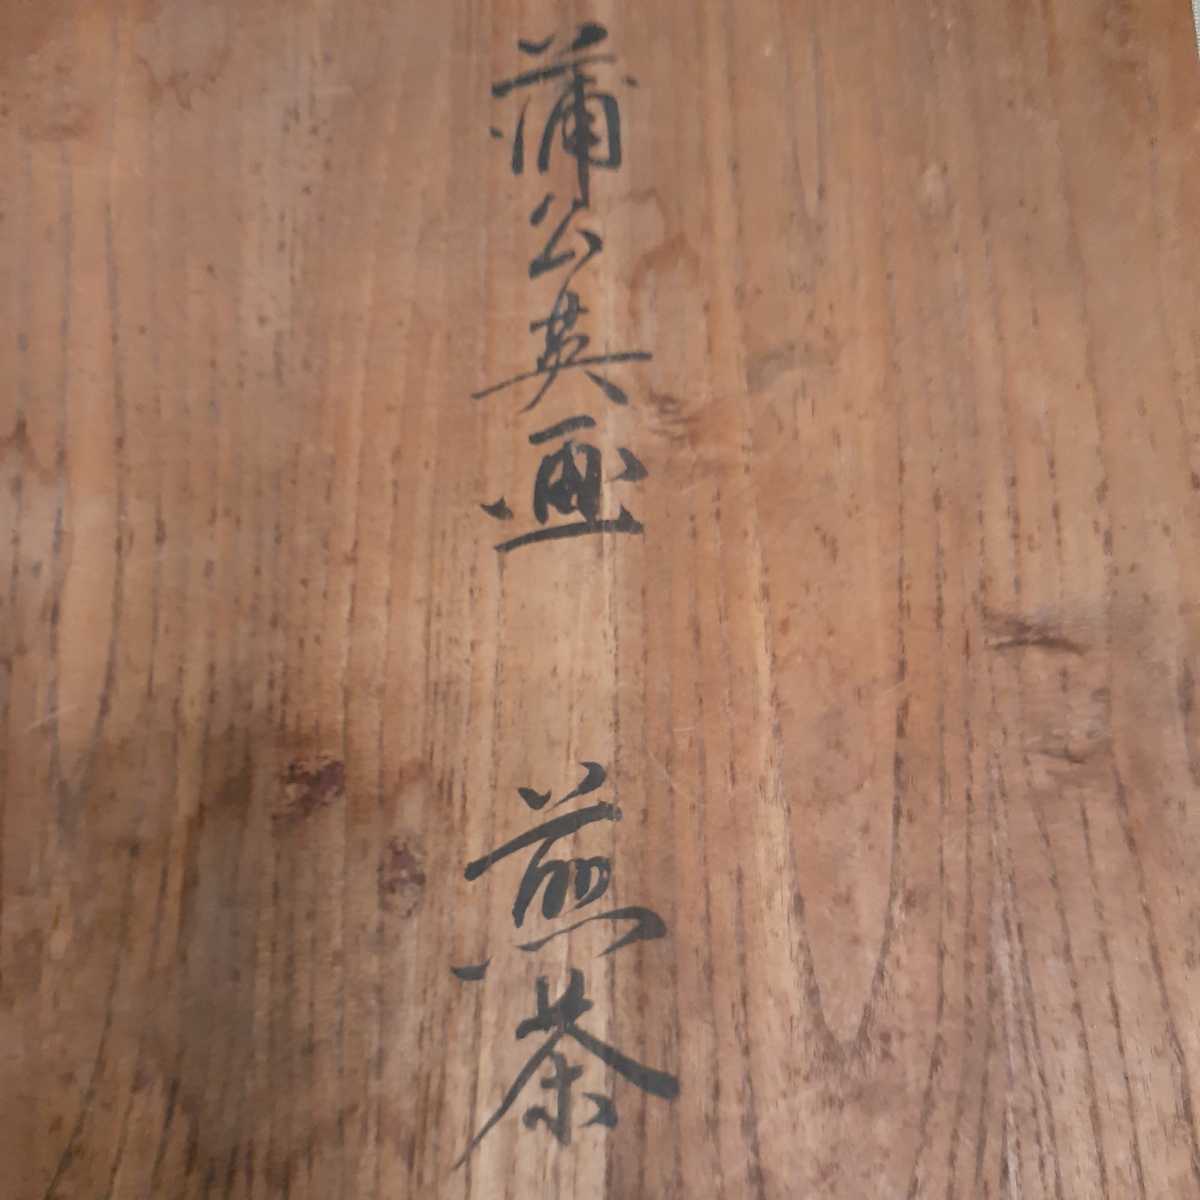 蒲公英画 煎茶